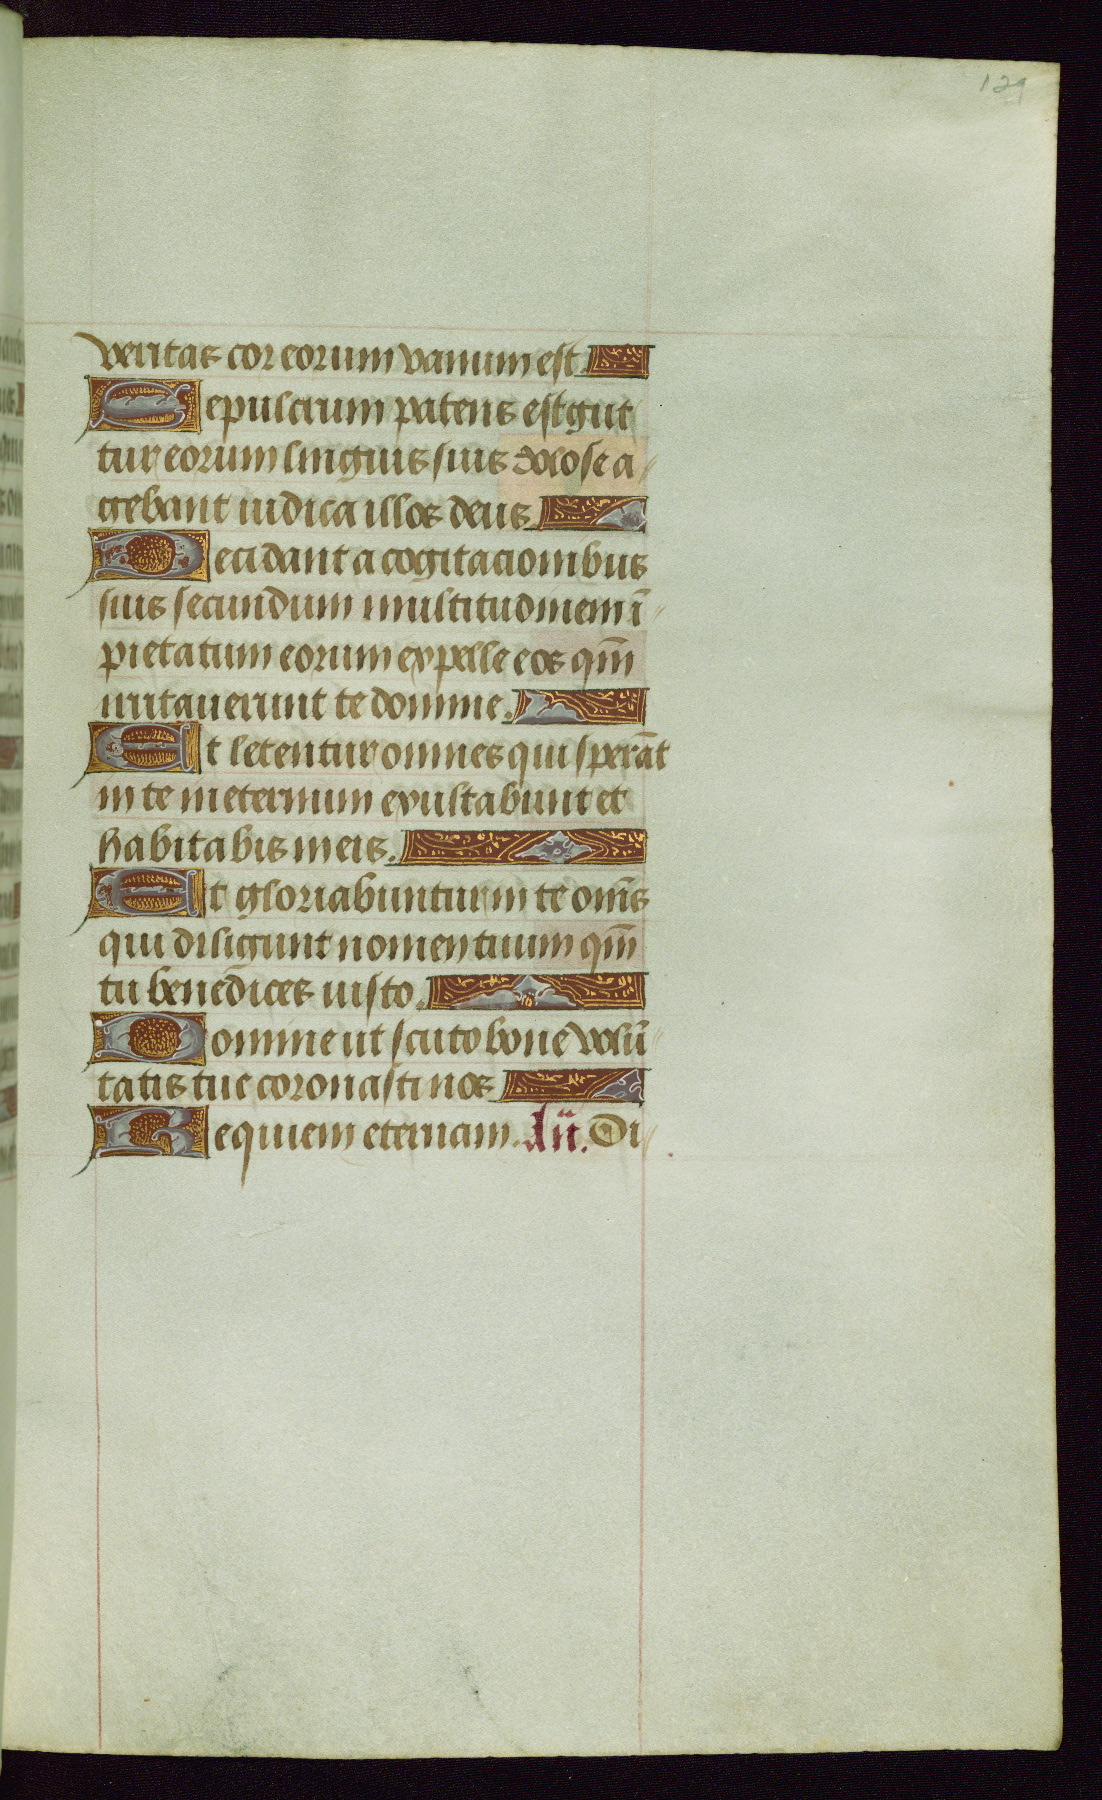 129
veritas cor eorum vanum est.
Sepulcrum patens est gut
tur eorum linguis suis dolose a
gebant iudica illos deus.
Decidant a cogitacionibus
suis secundum multitudinem ī
pietatum eorum expelle eos qm̄
irritauerunt te domine.
Et letentur omnes qui sperāt
in te in eternum exultabunt et
habitabis in eis.
Et gloriabuntur in te om̄s
qui diligunt nomen tuum qm̄
tu benedices iusto.
Domine ut scuto bone volū
tatis tue coronasti nos
Requiem eternam. An̄. Di